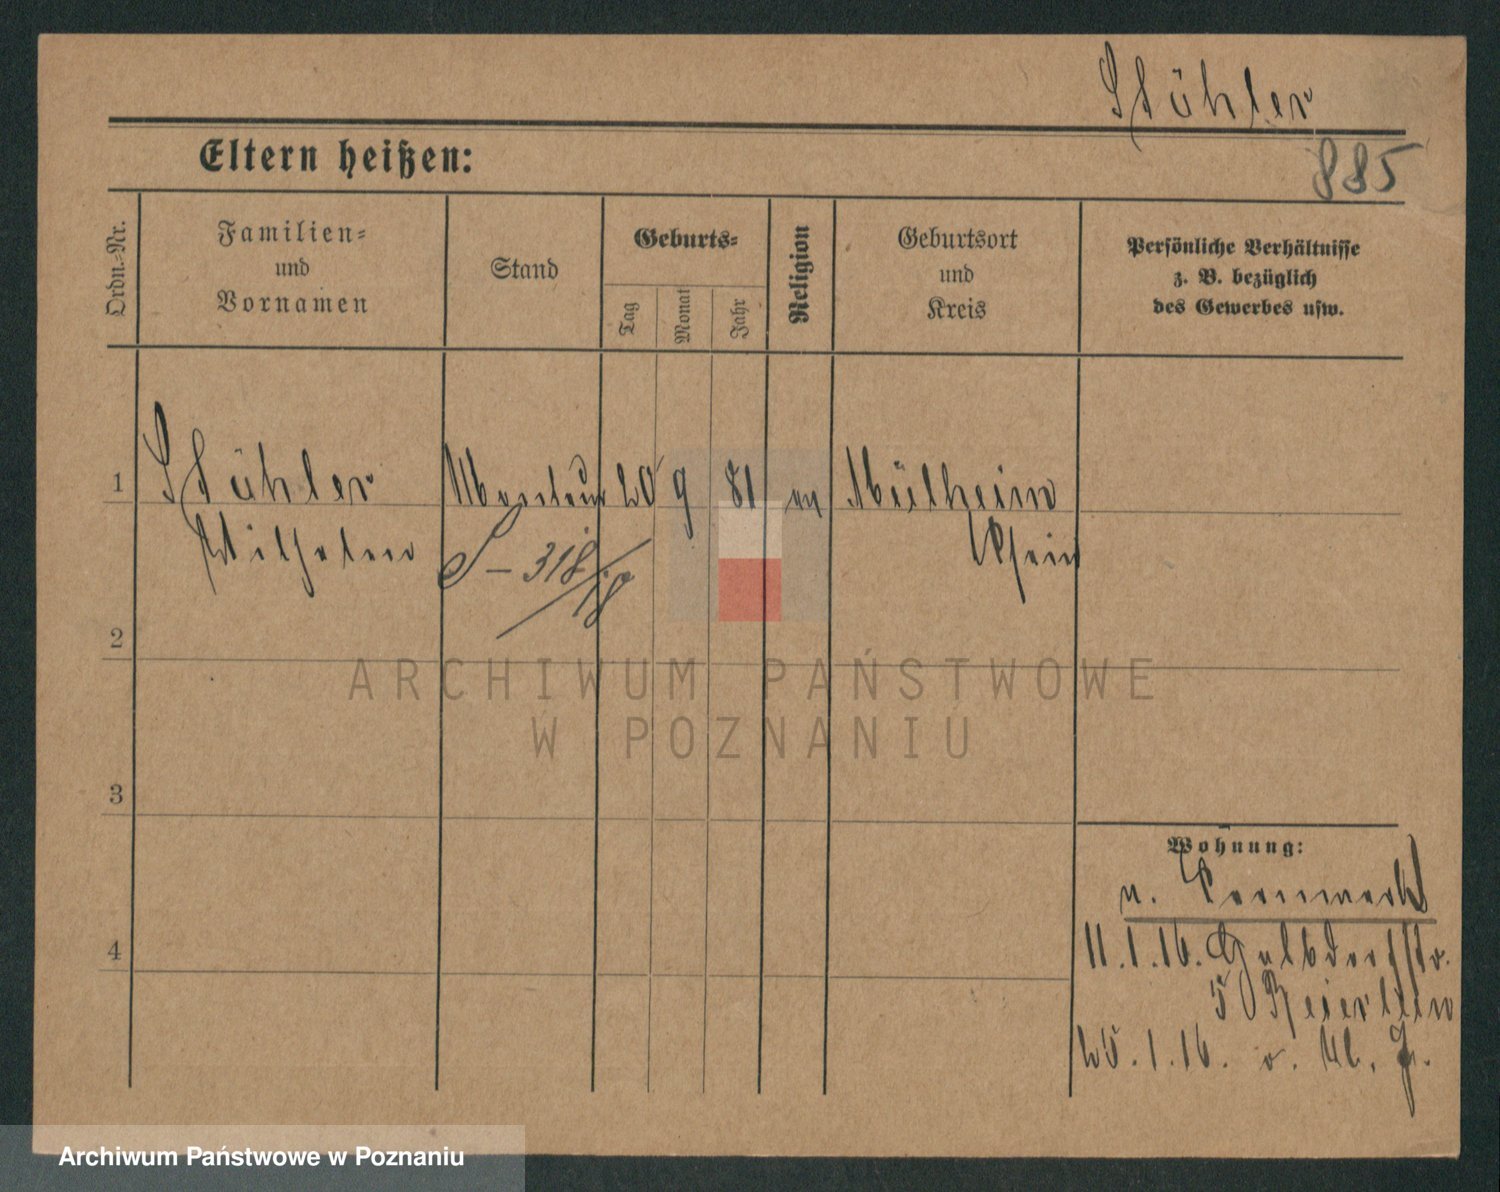 Stühler
885
Eltern heißen:
Ordn.-Nr.
Familien-
und
Vornamen
Stand
Geburts-
Tag
Monat
Jahr
Religion
Geburtsort
und
Kreis
Persönliche Verhältnisse
z. B. bezüglich
des Gewerbes usw.
1
Stühler
Wilhelm
Monteur
20
9
81
ev
Mülheim
Rhein
S – 318/18
2
ARCHIWUM PAŃSTWOWE
W POZNANIU
3
Wohnung:
n.
11.1.16. Halbdorfstr.
5
25.1.16. v.
4
Archiwum Państwowe w Poznaniu